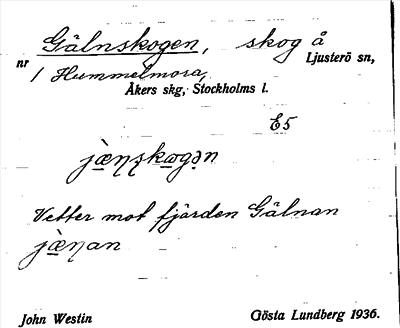 Gälnskogen, skog å
nr Ljusterö sn,
1 Hummelmora,
Åkers skg, Stockholms l.
E5
Vetter mot fjärden Gälnan
John Westin Gösta Lundberg 1936.